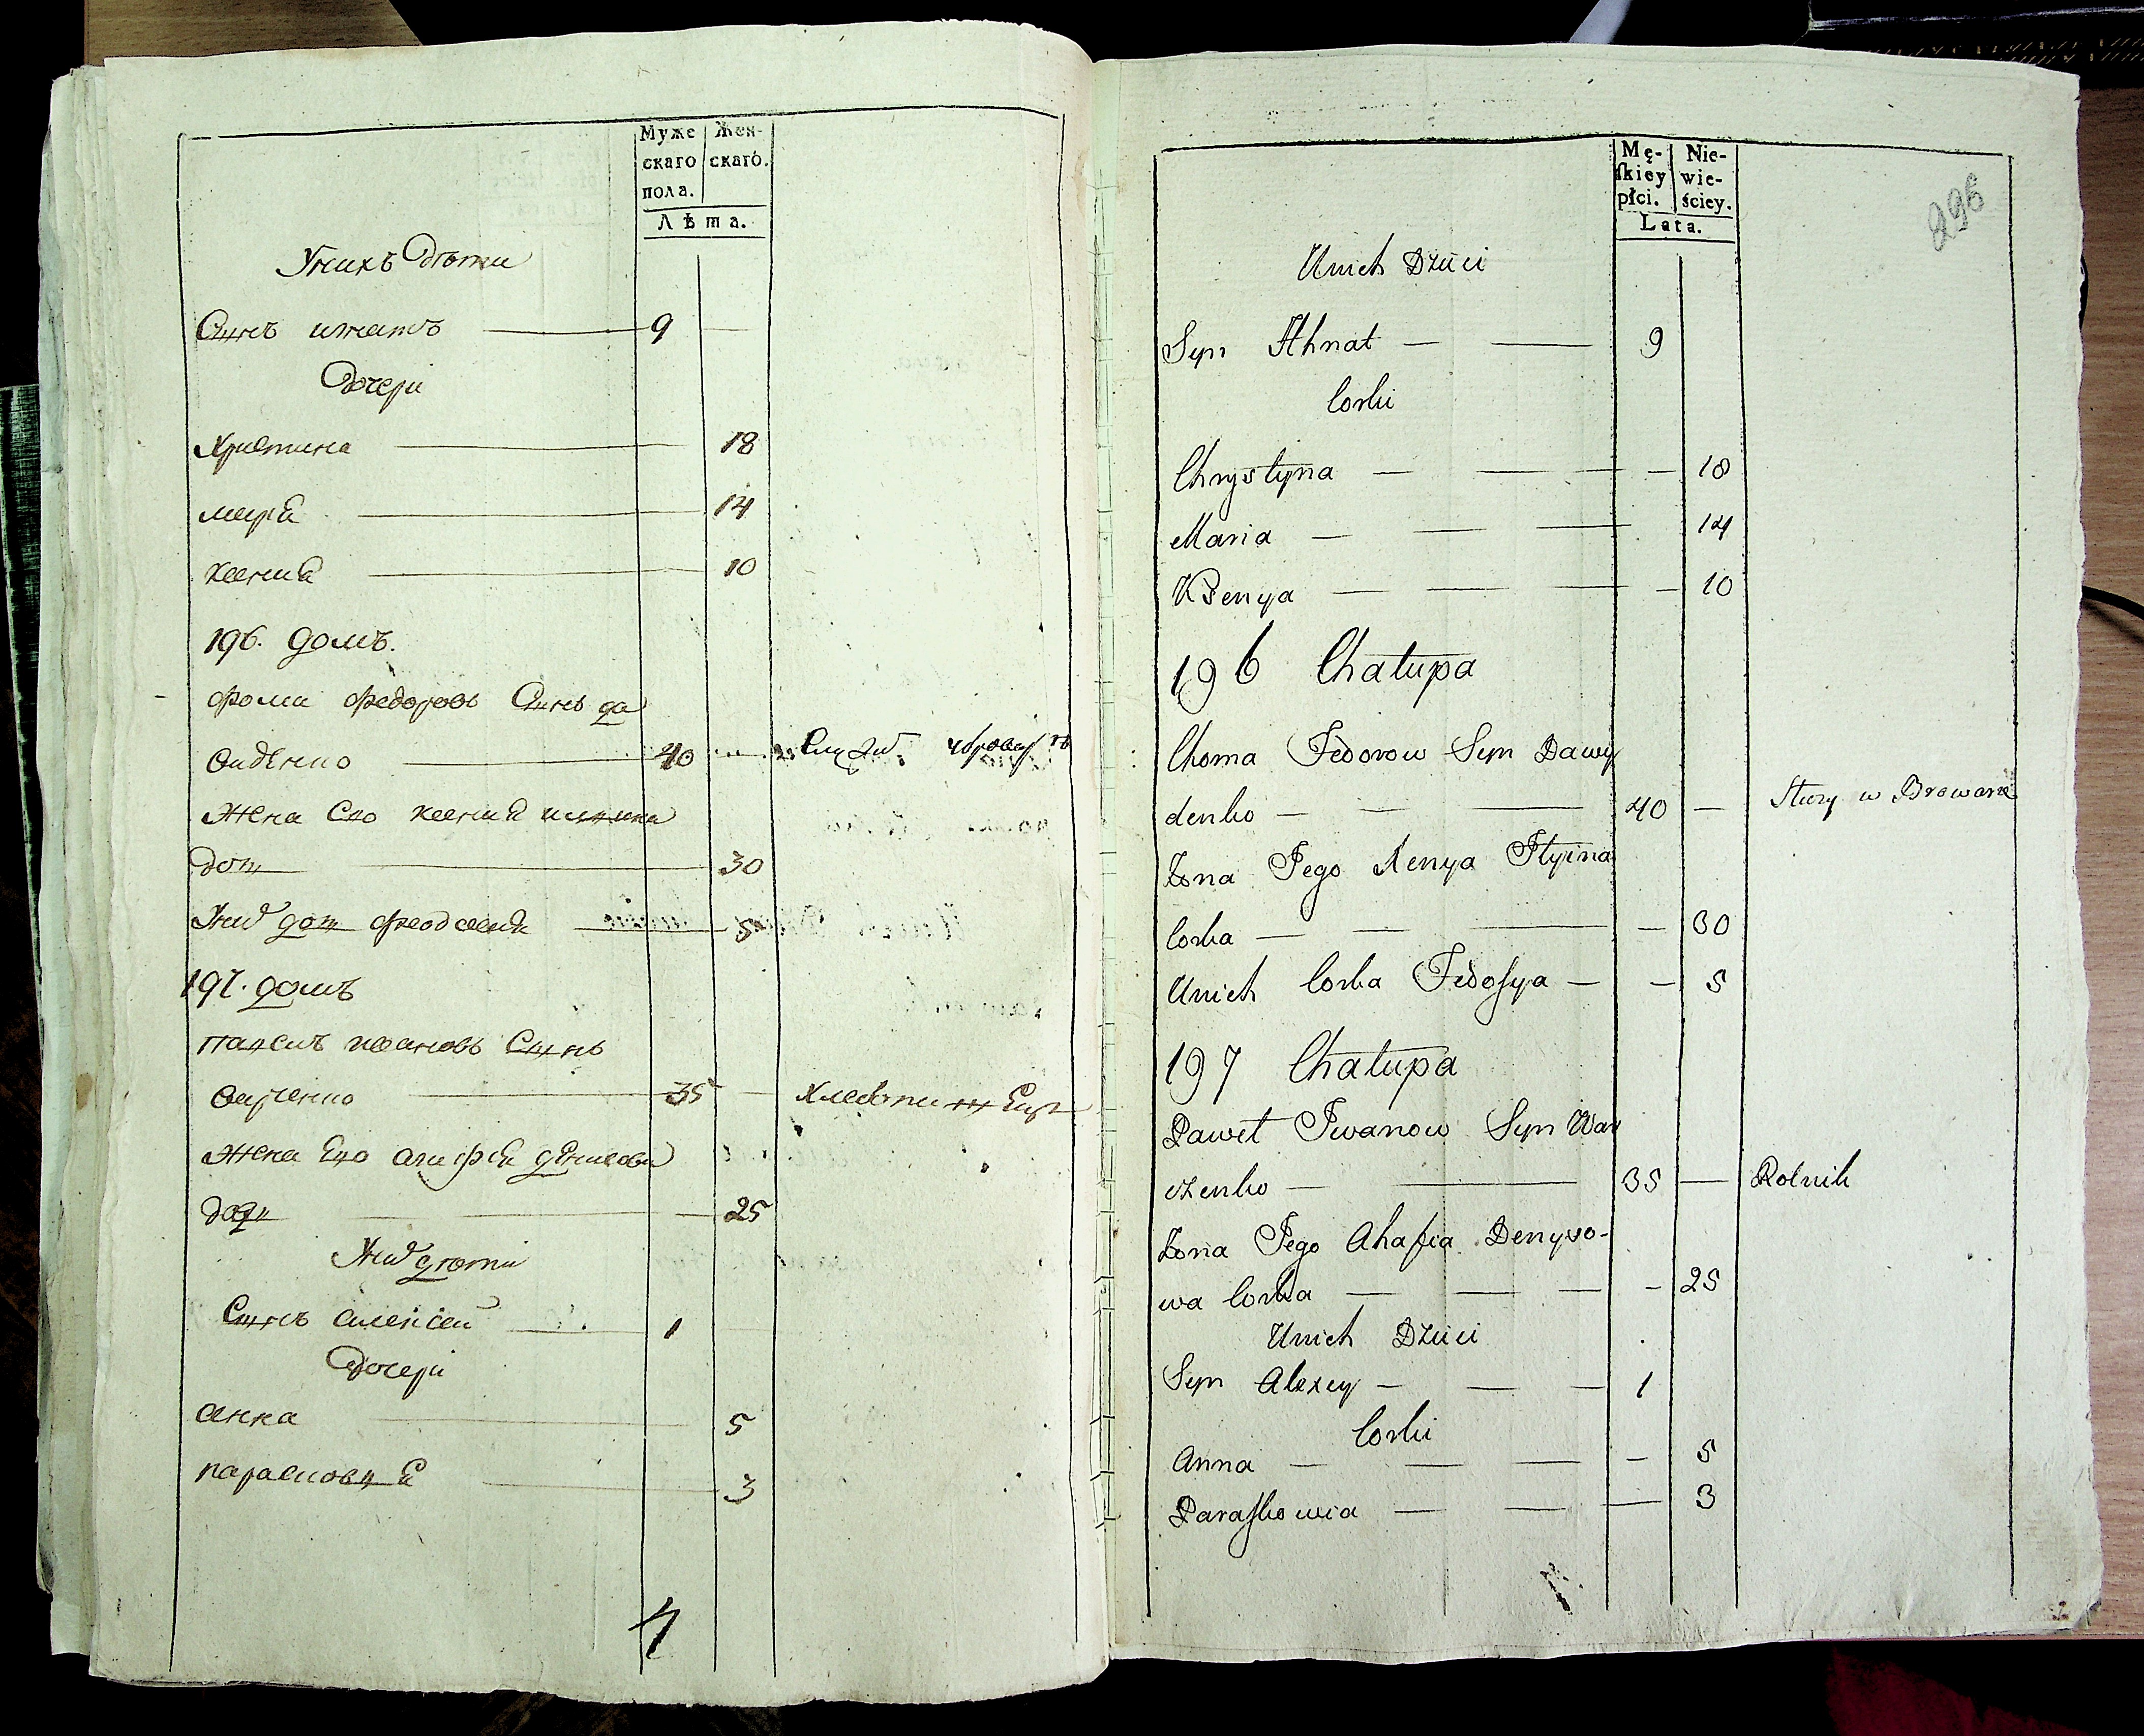 Муже Жен-
скаго скаго.
пола.
Лѣта.
У нихъ дѣти
Сынъ игнатъ 9
дочери
христина 18
мариа 14
ксения 10
196. домъ.
фома федоровъ Сынъ да
видѣнко 40
жена Его ксениа илина
дочь 30
У них дочь феодосиа 5
197. домъ
павелъ ивановъ Сынъ
35
жена Его агафиа денисова
дочь 25
У них дѣти
Сынъ алексей 1
дочери
анна 5
парасковиа 3
4
Mę- Nie-
ſkiey wie-
płci. ściey.
Lata.
296
Unich Dzieci
Syn Ihnat — — 9
Corki
Chrystyna — — — — 18
Maria — — — 14
Ksenya — — — — 10
196 Chałupa
Choma Fedorow Syn Dawy
denko — — — 40 — Służy w Browarze
Żona Jego Xenya Ilyina
Corka — — — — 30
Unich Corka Fedoſya — — 5
197 Chałupa
Paweł Iwanow Syn War
czenko — — 35 — Rolnik
Żona Jego Ahafia Denyso-
wa Corka — — — — 25
Unich Dzieci
Syn Alexey — — — 1
Corki
Anna — — — — 5
Paraſkowia — — — 3